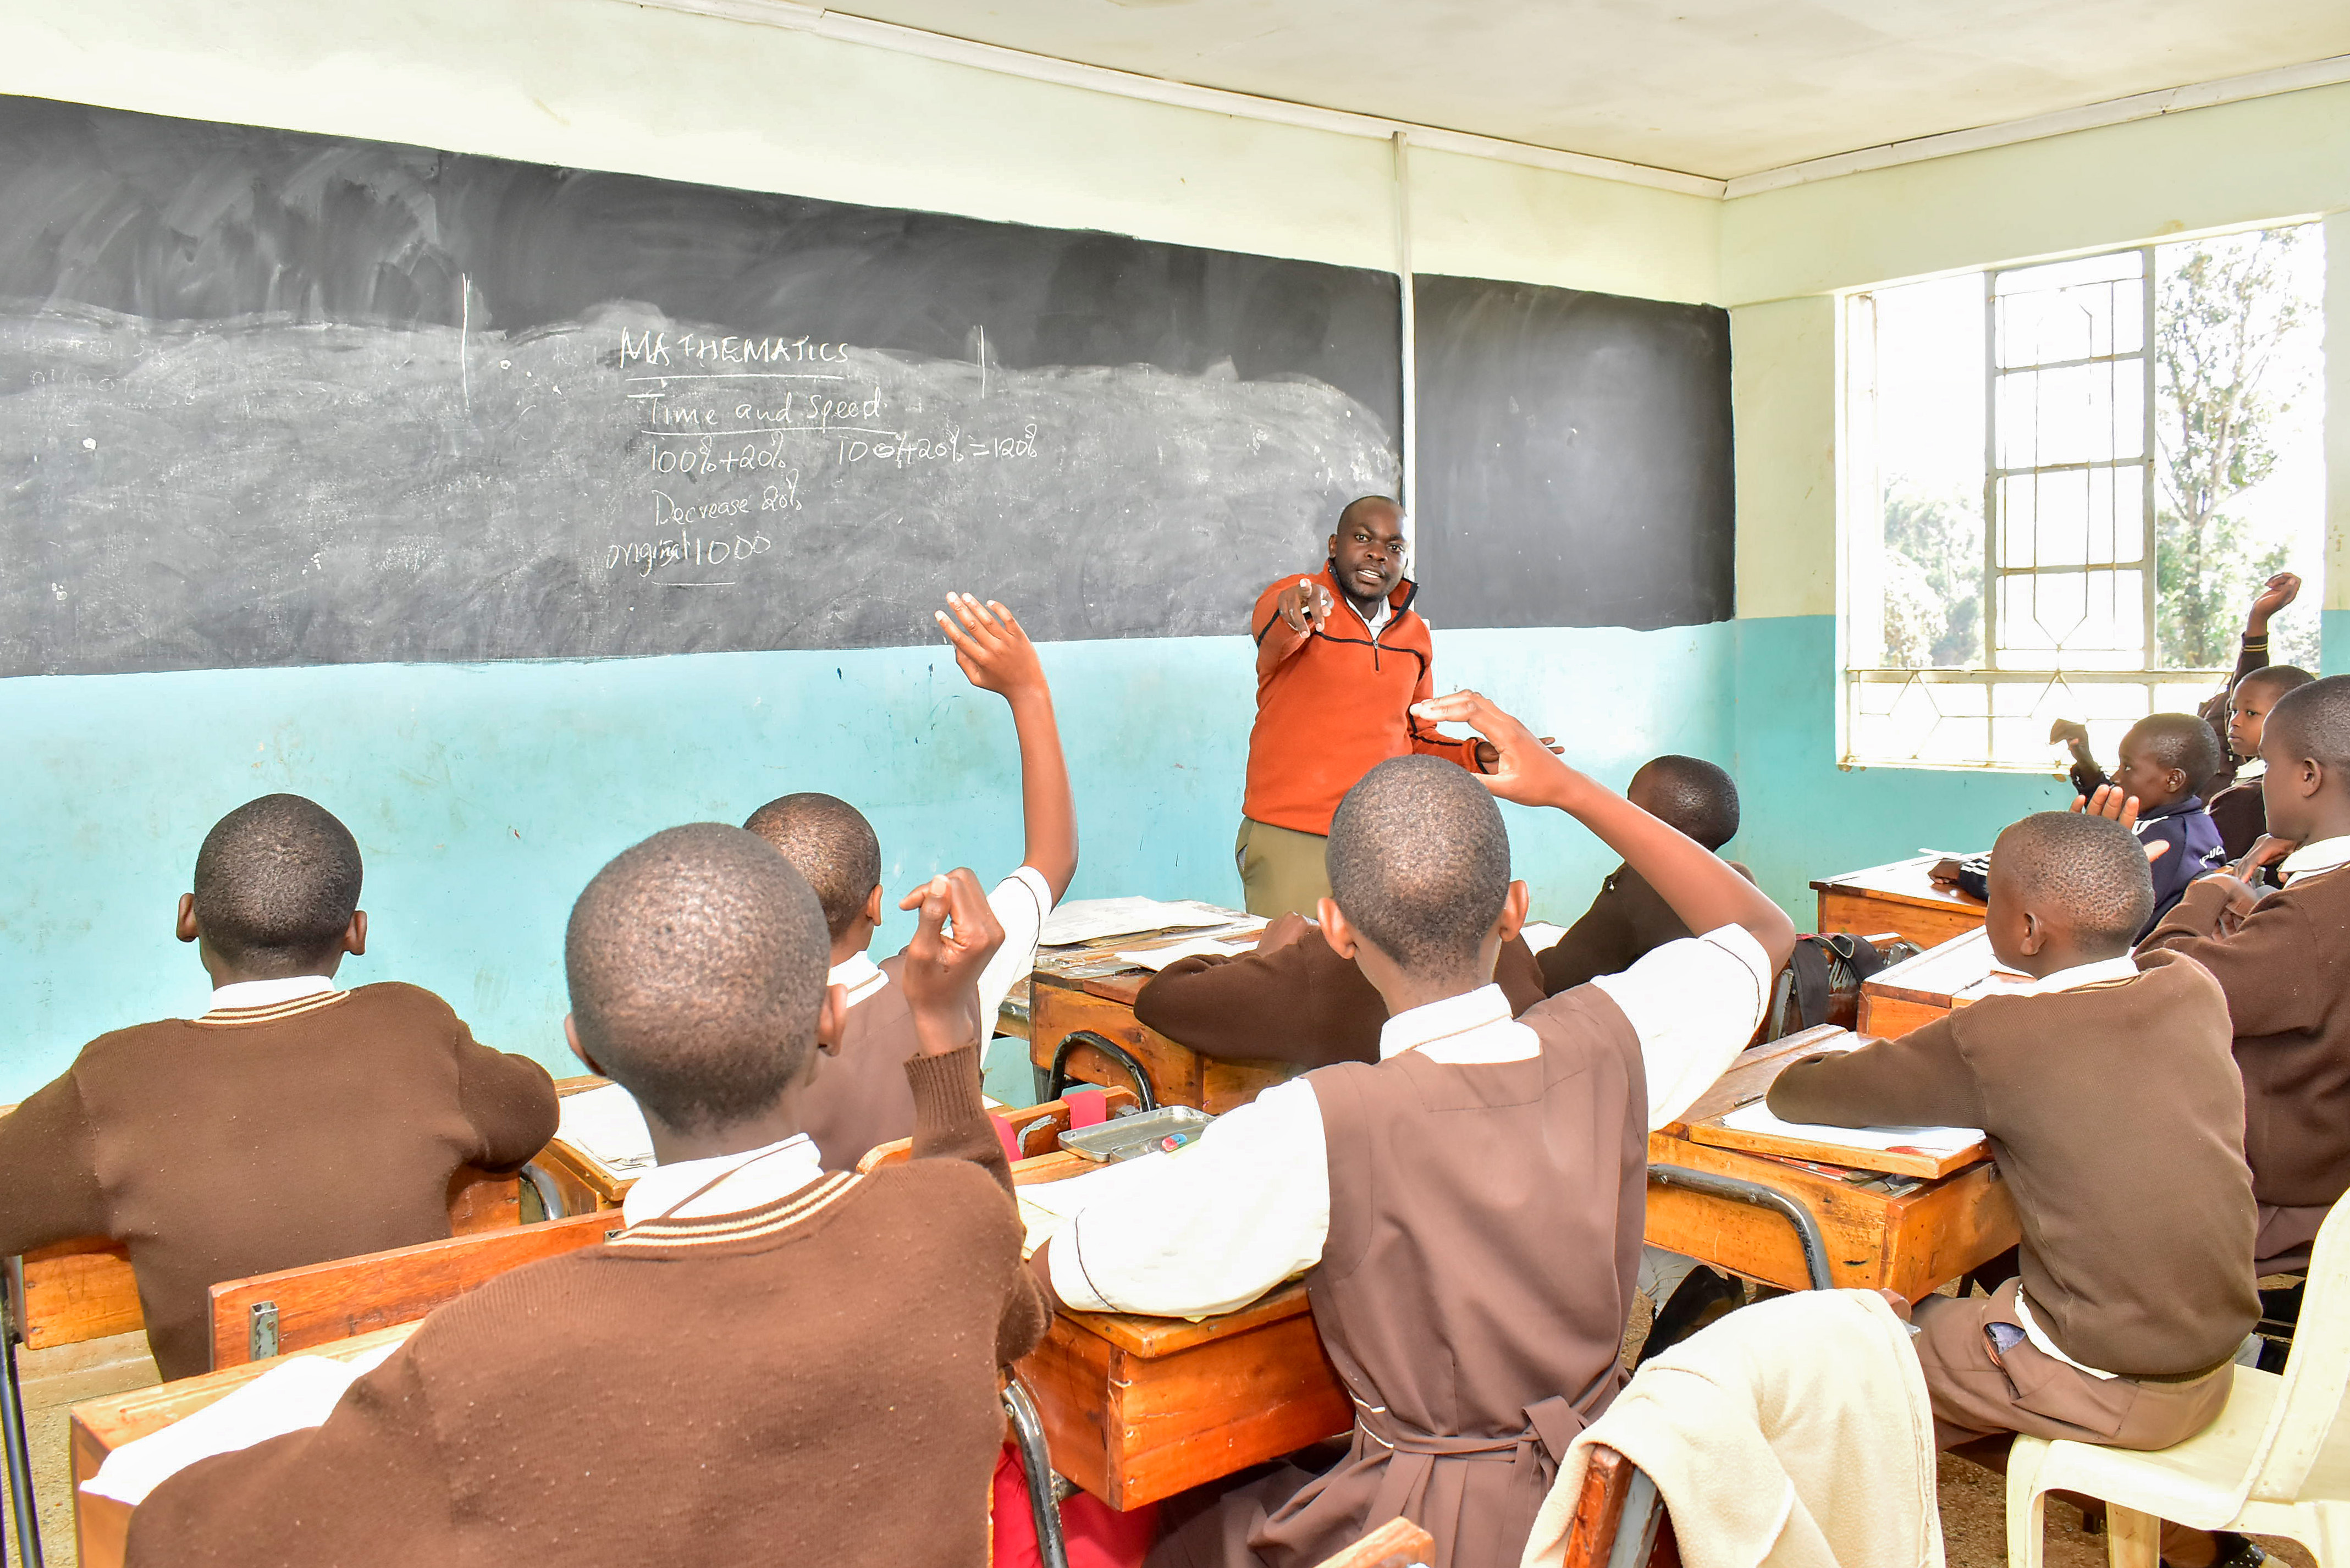 MATHEMATICS
Time and Speed
100%+20% 100%+20%=120%
Decrease 20%
original 1000